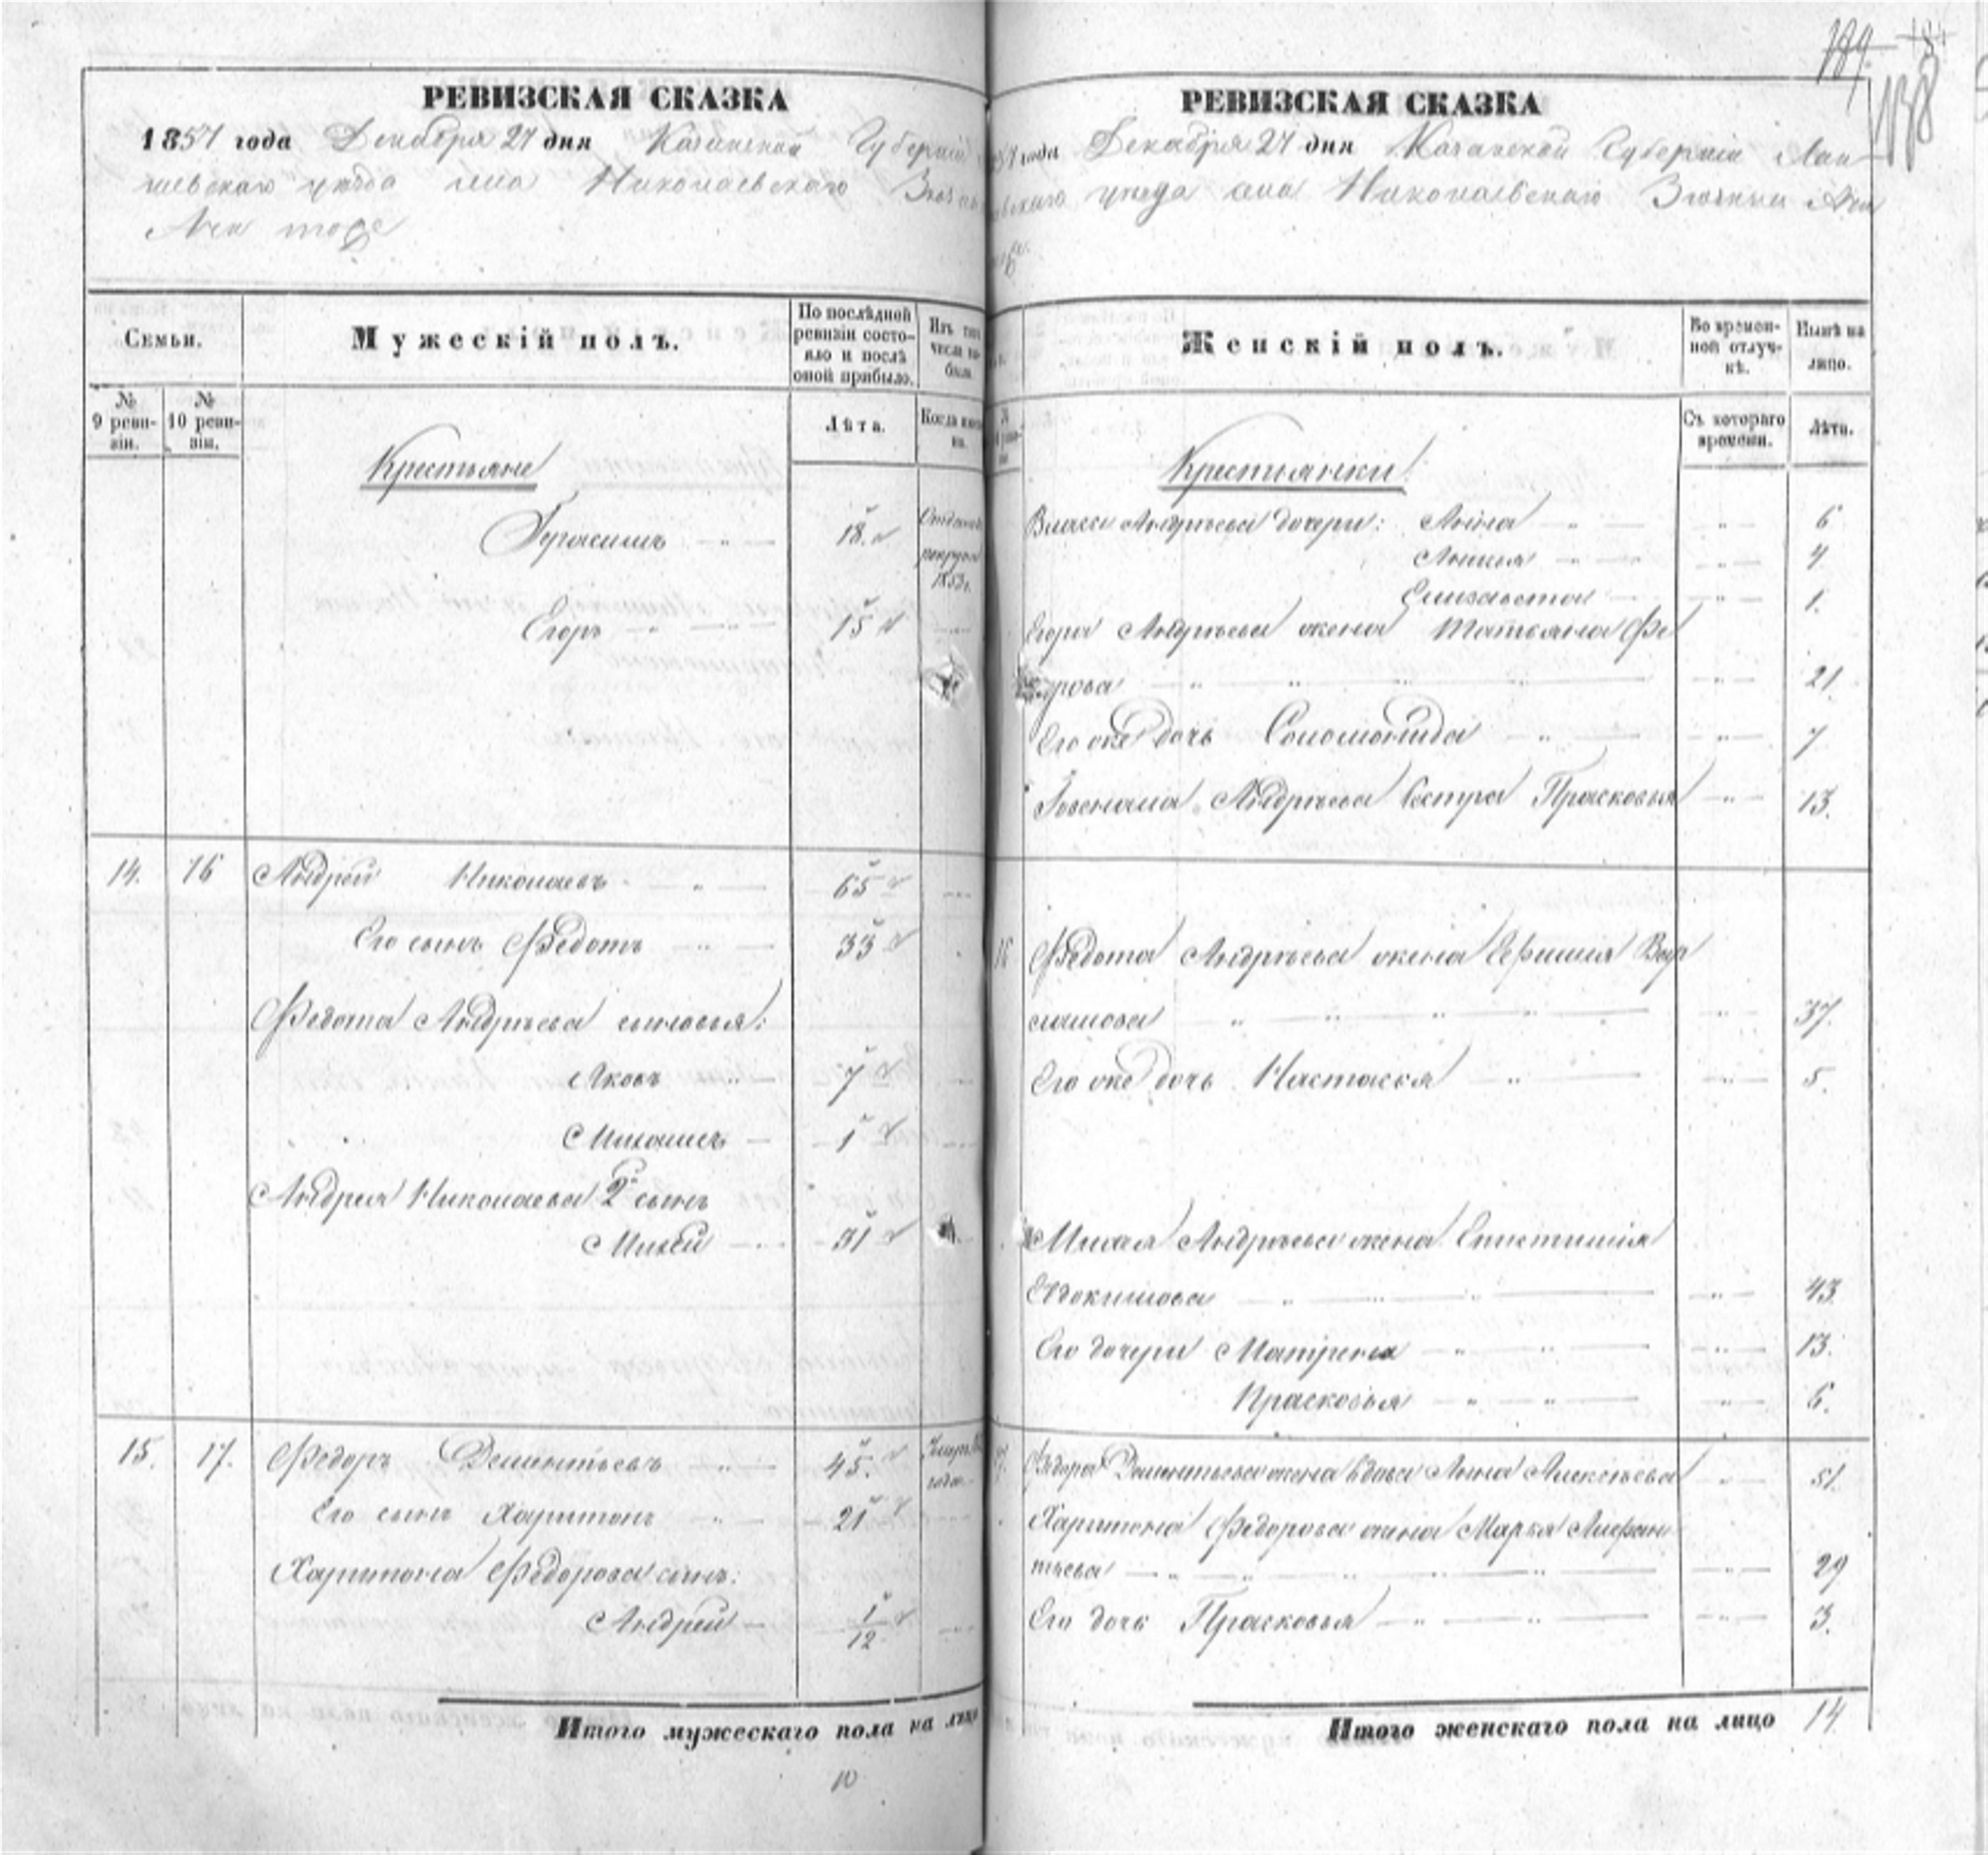 РЕВИЗСКАЯ СКАЗКА
1857 года Декабря 27 дня Казанской Губерніи
шевскаго уѣзда села Николаевскаго
тоже
Семьи.
Мужескій полъ.
По послѣдней ревизіи состояло и послѣ оной прибыло.
Изъ того числа выбыло
№ 9 ревизіи.
№ 10 ревизіи.
Лѣта.
Когда именно.
Крестьяне
Герасимъ 18 Отданъ рекруты 1853 г.
Егоръ 15
14. 16 Андрей Николаевъ 65
Его сынъ Федотъ 33
Федота Андрѣева сыновья:
Яковъ 7
Михаилъ 1
Андрея Николаева 2й сынъ
Михей 31
15. 17. Федоръ Дементьевъ 45. года
Его сынъ Харитонъ 21
Харитона Федорова сынъ:
Андрей 1/12
Итого мужескаго пола на лицо
10
189
138
РЕВИЗСКАЯ СКАЗКА
57 года Декабря 27 дня Казанской Губерніи Лаи
шевскаго уѣзда села Николаевскаго
тоже.
Женскій полъ.
Во временной отлучкѣ.
Нынѣ на лицо.
Съ котораго времени.
Лѣта.
Крестьянки
Власа Андрѣева дочери: Анна 6
4
Елизавета 1.
Егора Андрѣева жена Татьяна Фе
дорова 21.
Его же дочь Соломонида 7
Андрѣева сестра Прасковья 13.
16 Федота Андрѣева жена Ефимия Вар
ламова 37.
Его же дочь Настасья 5.
Михея Андрѣева жена Епистимія
Евдокимова 43
Его дочери Матрена 13.
Прасковья 6.
17. Федора Дементьева жена вдова Анна Алексѣева 51.
Харитона Федорова жена Марья Лифан
тьева 29
Его дочь Прасковья 3.
Итого женскаго пола на лицо 14